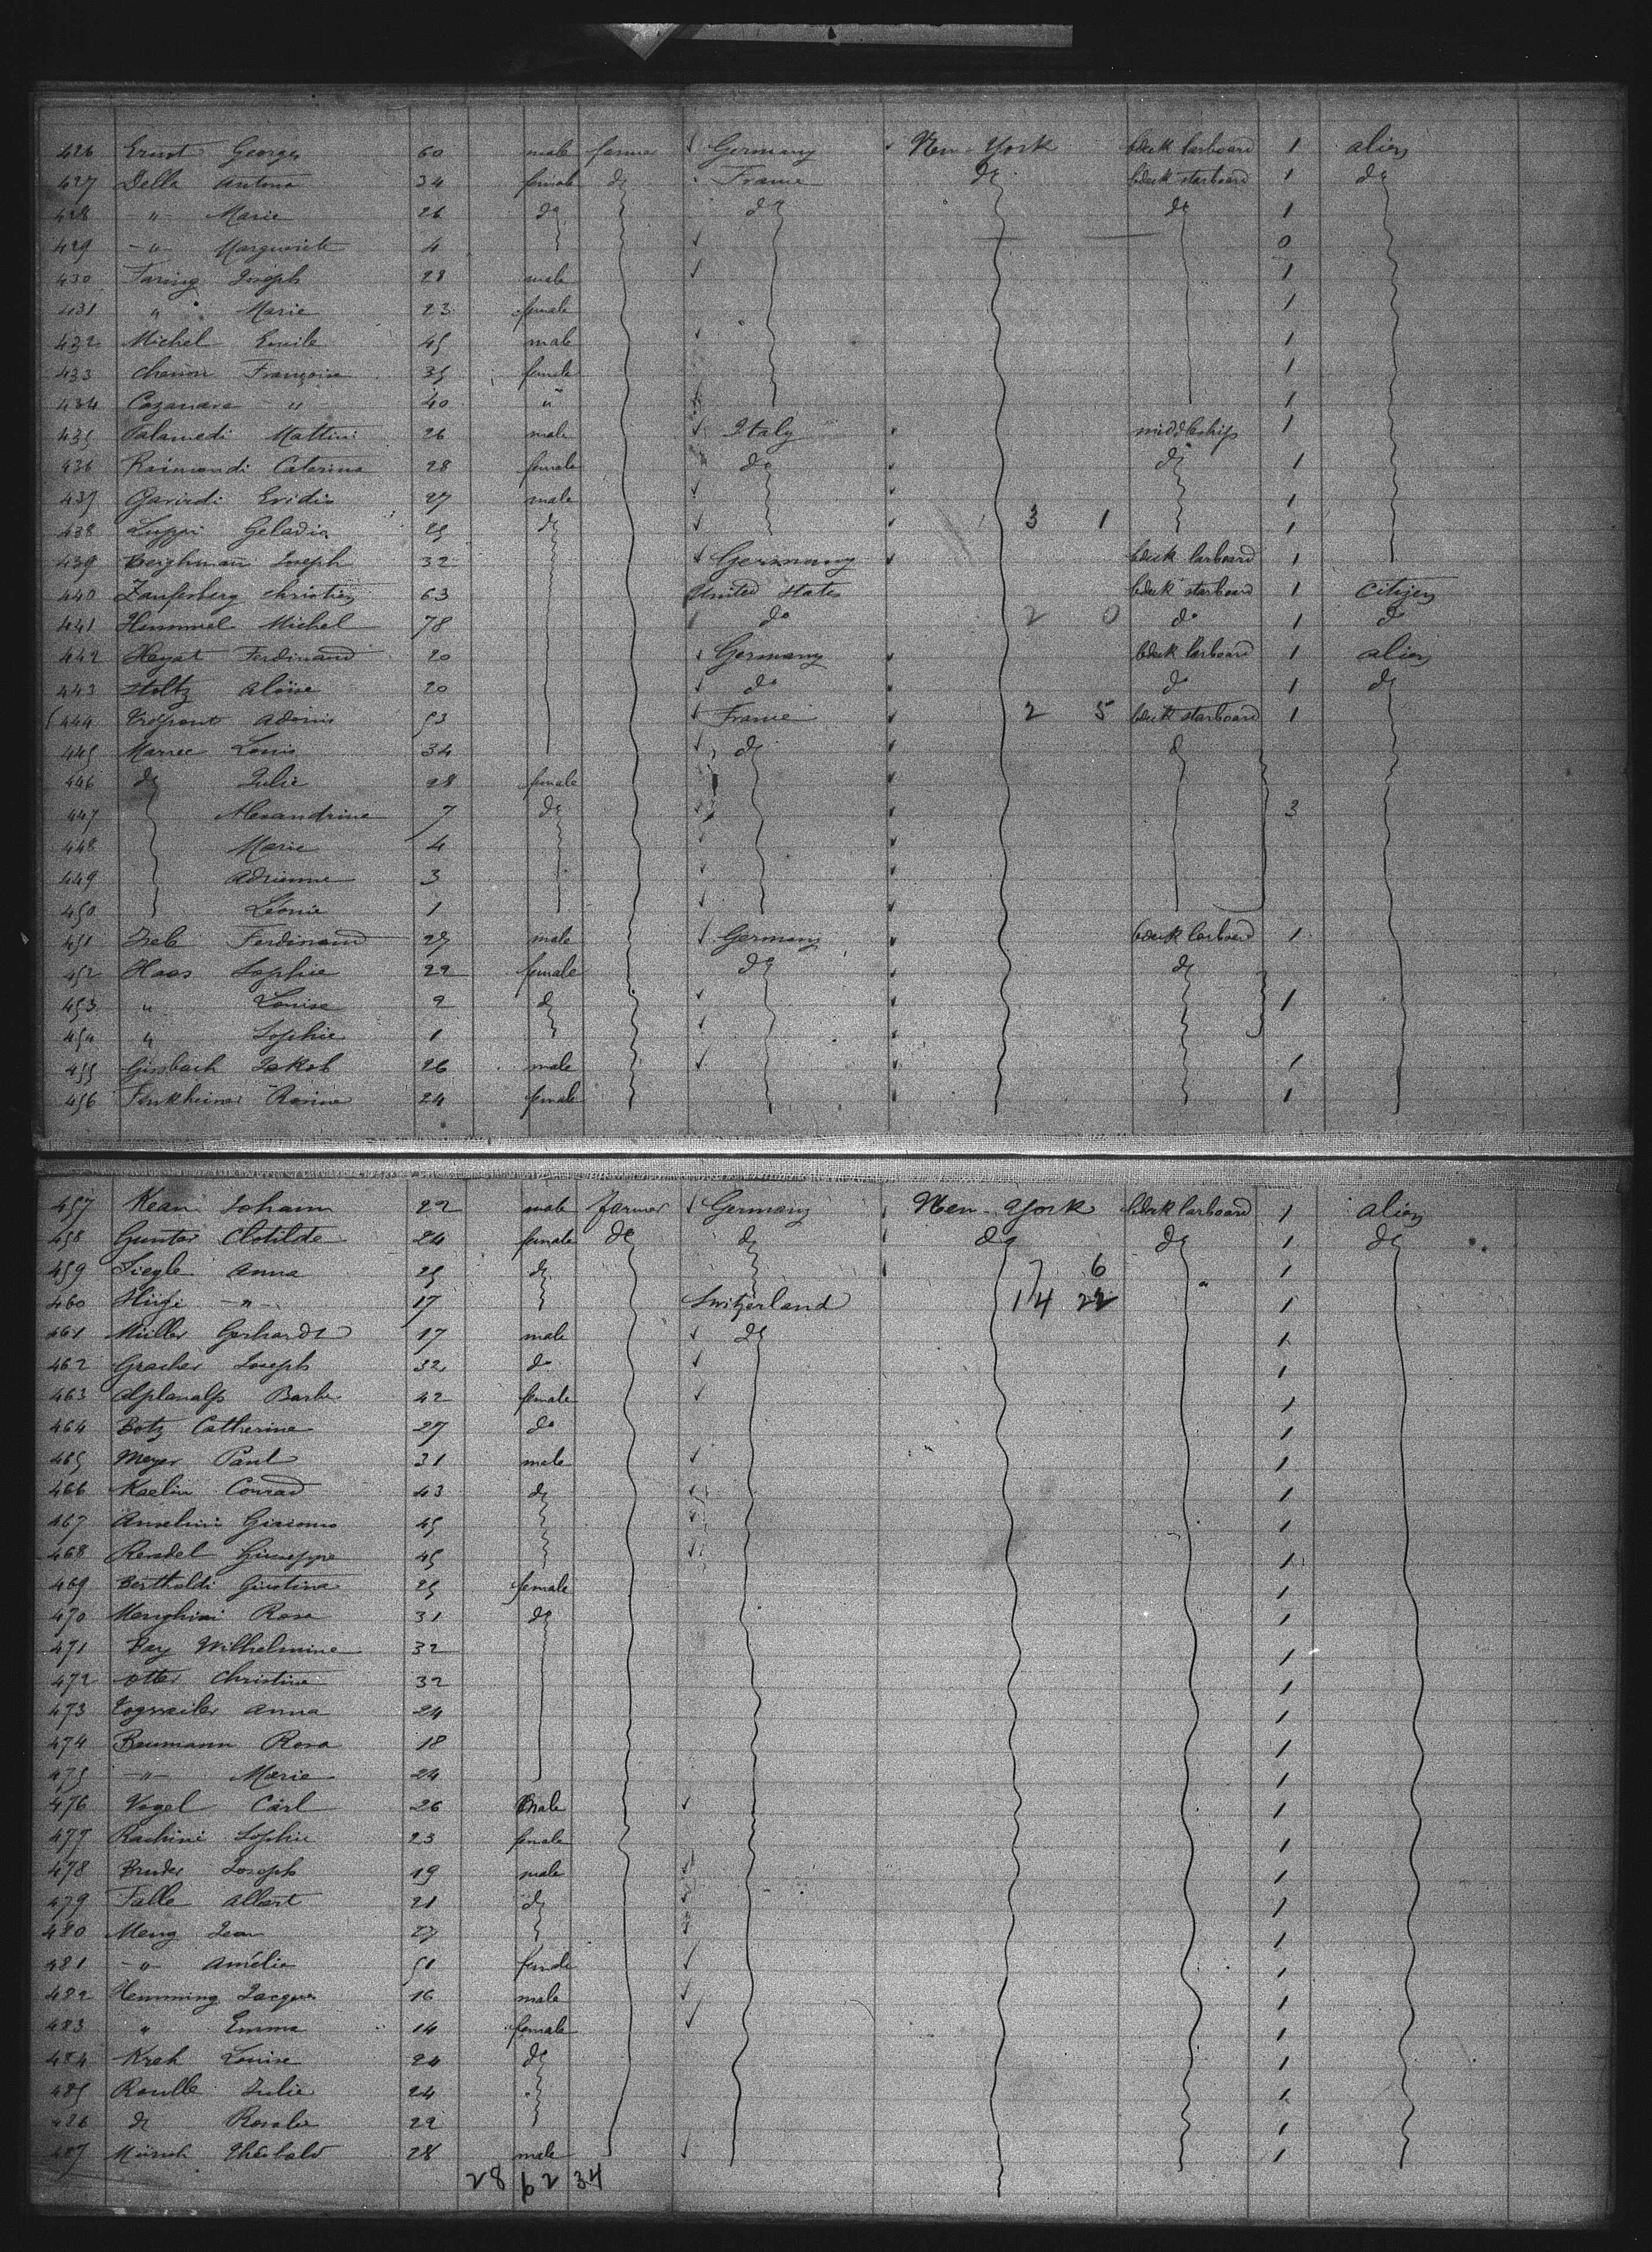 426 Ernst George 60 male farmer Germany New-York bdeck larboard 1 alien
427 Della Antona 34 female do France do bdeck starboard 1 do
428 -"- Marie 26 do do do 1
429 -"- Marguerite 4 0
430 Faring Joseph 28 male 1
431 " Marie 23 female 1
432 Michel Emile 45 male 1
433 Françoise 35 female 1
434 Cazanave -"- 40 " 1
435 Palamedi Mattini 26 male Italy middleship 1
436 Raimondi Caterina 28 female do do 1
437 27 male 1
438 Luppi Geladia 25 do 3 1 1
439 Berghman Joseph 32 Germany bdeck larboard 1
440 63 United States bdeck starboard 1 citizen
441 Hemmel Michel 78 do 2 0 do 1 do
442 Heyat Ferdinand 20 Germany bdeck larboard 1 alien
443 Stoltz Aloïse 20 do do 1 do
444 Adonis 53 France 2 5 bdeck starboard 1
445 Marrec Louis 34 do do
446 do Julie 28 female
447 Alexandrine 7 do 3
448 Marie 4
449 Adrienne 3
450 Léonie 1
451 Ferdinand 27 male Germany bdeck larboard 1
452 Haas Sophie 22 female do do
453 " Louise 2 do 1
454 " Sophie 1
455 Gisbach Jakob 26 male 1
456 Rosine 24 female 1
457 Kean Johann 22 male farmer Germany New-York bdeck larboard 1 alien
458 Gunter Clotilde 24 female do do do do 1 do
459 Siegle Anna 25 do 7 6 1
460 Hügi -"- 17 Switzerland 14 22 1
461 Müller Gerhardt 17 male do 1
462 Gracher Joseph 32 do 1
463 Alplanalp Barbe 42 female 1
464 Botz Catherine 27 do 1
465 Meyer Paul 31 male 1
466 Kaelin Conrad 43 do 1
467 Anselmi Giacomo 45 1
468 Rendel Giuseppe 45 1
469 Bertholdi Giustina 25 female 1
470 Menghini Rosa 31 do 1
471 Bay Wilhelmine 32 1
472 Otter Christine 32 1
473 Anna 24 1
474 Baumann Rosa 18 1
475 -"- Marie 24 1
476 Vogel Carl 26 male 1
477 Rachini Sophie 23 female 1
478 Bruder Joseph 19 male 1
479 Falle Albert 21 do 1
480 Meng Jean 27 1
481 -"- Amélie 51 female 1
482 Hemming Jacques 16 male 1
483 " Emma 14 female 1
484 Kreh Louise 24 do 1
485 Roulle Julie 24 1
486 do Rosalie 22 1
487 Münch Théobald 28 male 1
28 62 34